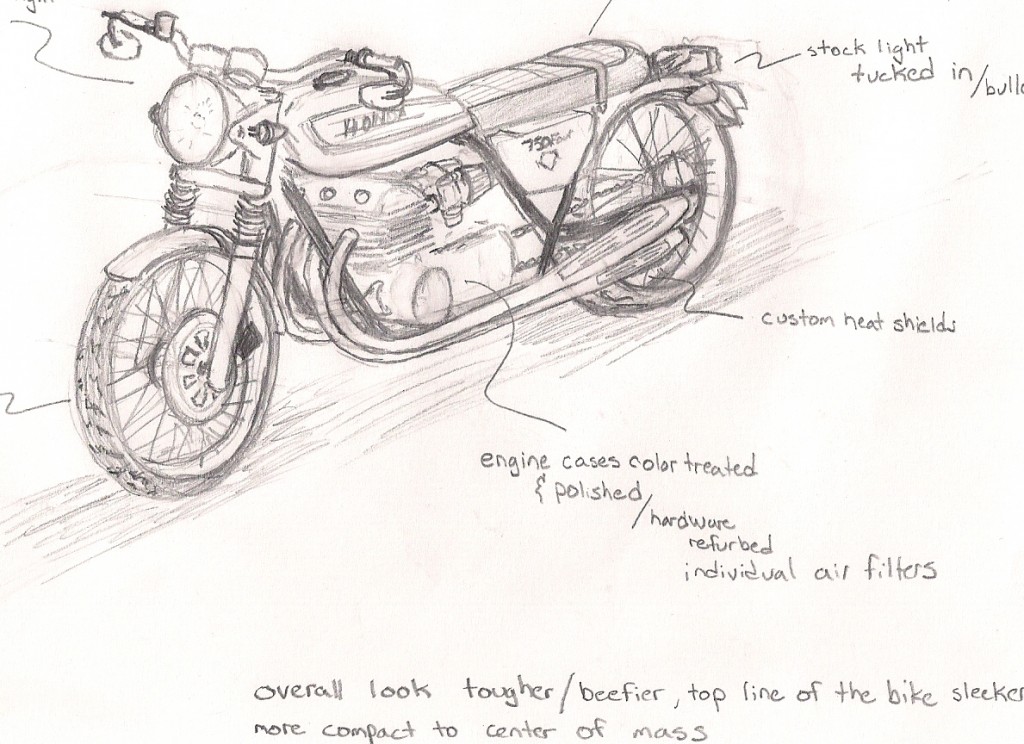 stock light
tucked in/
HONDA
750 Four
custom heat shields
engine cases color treated
& polished/
hardware
refurbed
individual air filters
overall look tougher/beefier, top line of the bike sleeker
more compact to center of mass